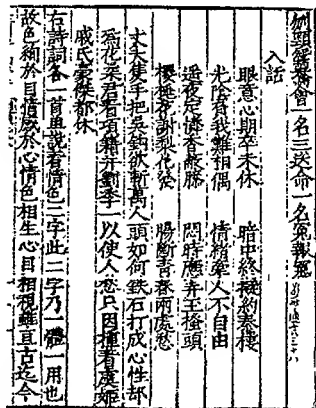 刎頸鴛鴦會一名三送命一名冤報冤
入話
眼意心期卒未休　暗中終擬約秦樓
光陰負我難相偶　情緒牽人不自由
遙夜定憐香蔽膝　悶時應弄玉搔頭
櫻桃花謝梨花發　腸斷青春兩處愁
丈夫隻手把吳鉤欲斬萬人頭如何鉄石打成心性却
為花柔君看項籍并劉季一以使人愁只因撞着虞姬
戚氏豪傑都休
右詩詞各一首單說着情色二字此二字乃一體一用也
故色絢於目情感於心情色相生心目相視雖亘古迄今